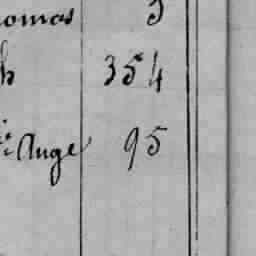 omas 3
h 354
Auge 95